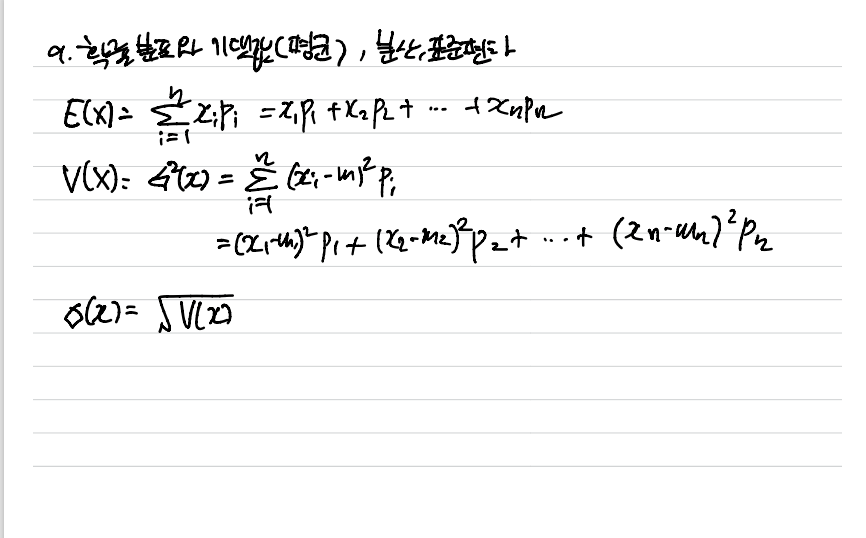 9. 확률분포와 기대값(평균), 분산, 표준편차
E(X) = Σ_{i=1}^{n} x_i p_i = x_1 p_1 + x_2 p_2 + ··· + x_n p_n
V(X) = σ²(x) = Σ_{i=1}^{n} (x_i - m)² p_i
= (x_1 - m_1)² p_1 + (x_2 - m_2)² p_2 + ··· + (x_n - m_n)² p_n
σ(x) = √V(x)